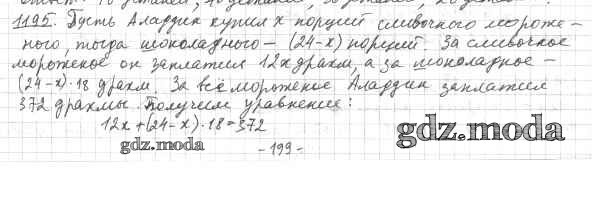 1195. Пусть Аладдин купил x порций сливочного мороже-
ного, тогда шоколадного – (24-x) порций. За сливочное
мороженое он заплатил 12x драхм, а за шоколадное –
(24-x)·18 драхм. За всё мороженое Аладдин заплатил
372 драхмы. Получим уравнение:
12x+(24-x)·18=372
gdz.moda
gdz.moda
- 199 -